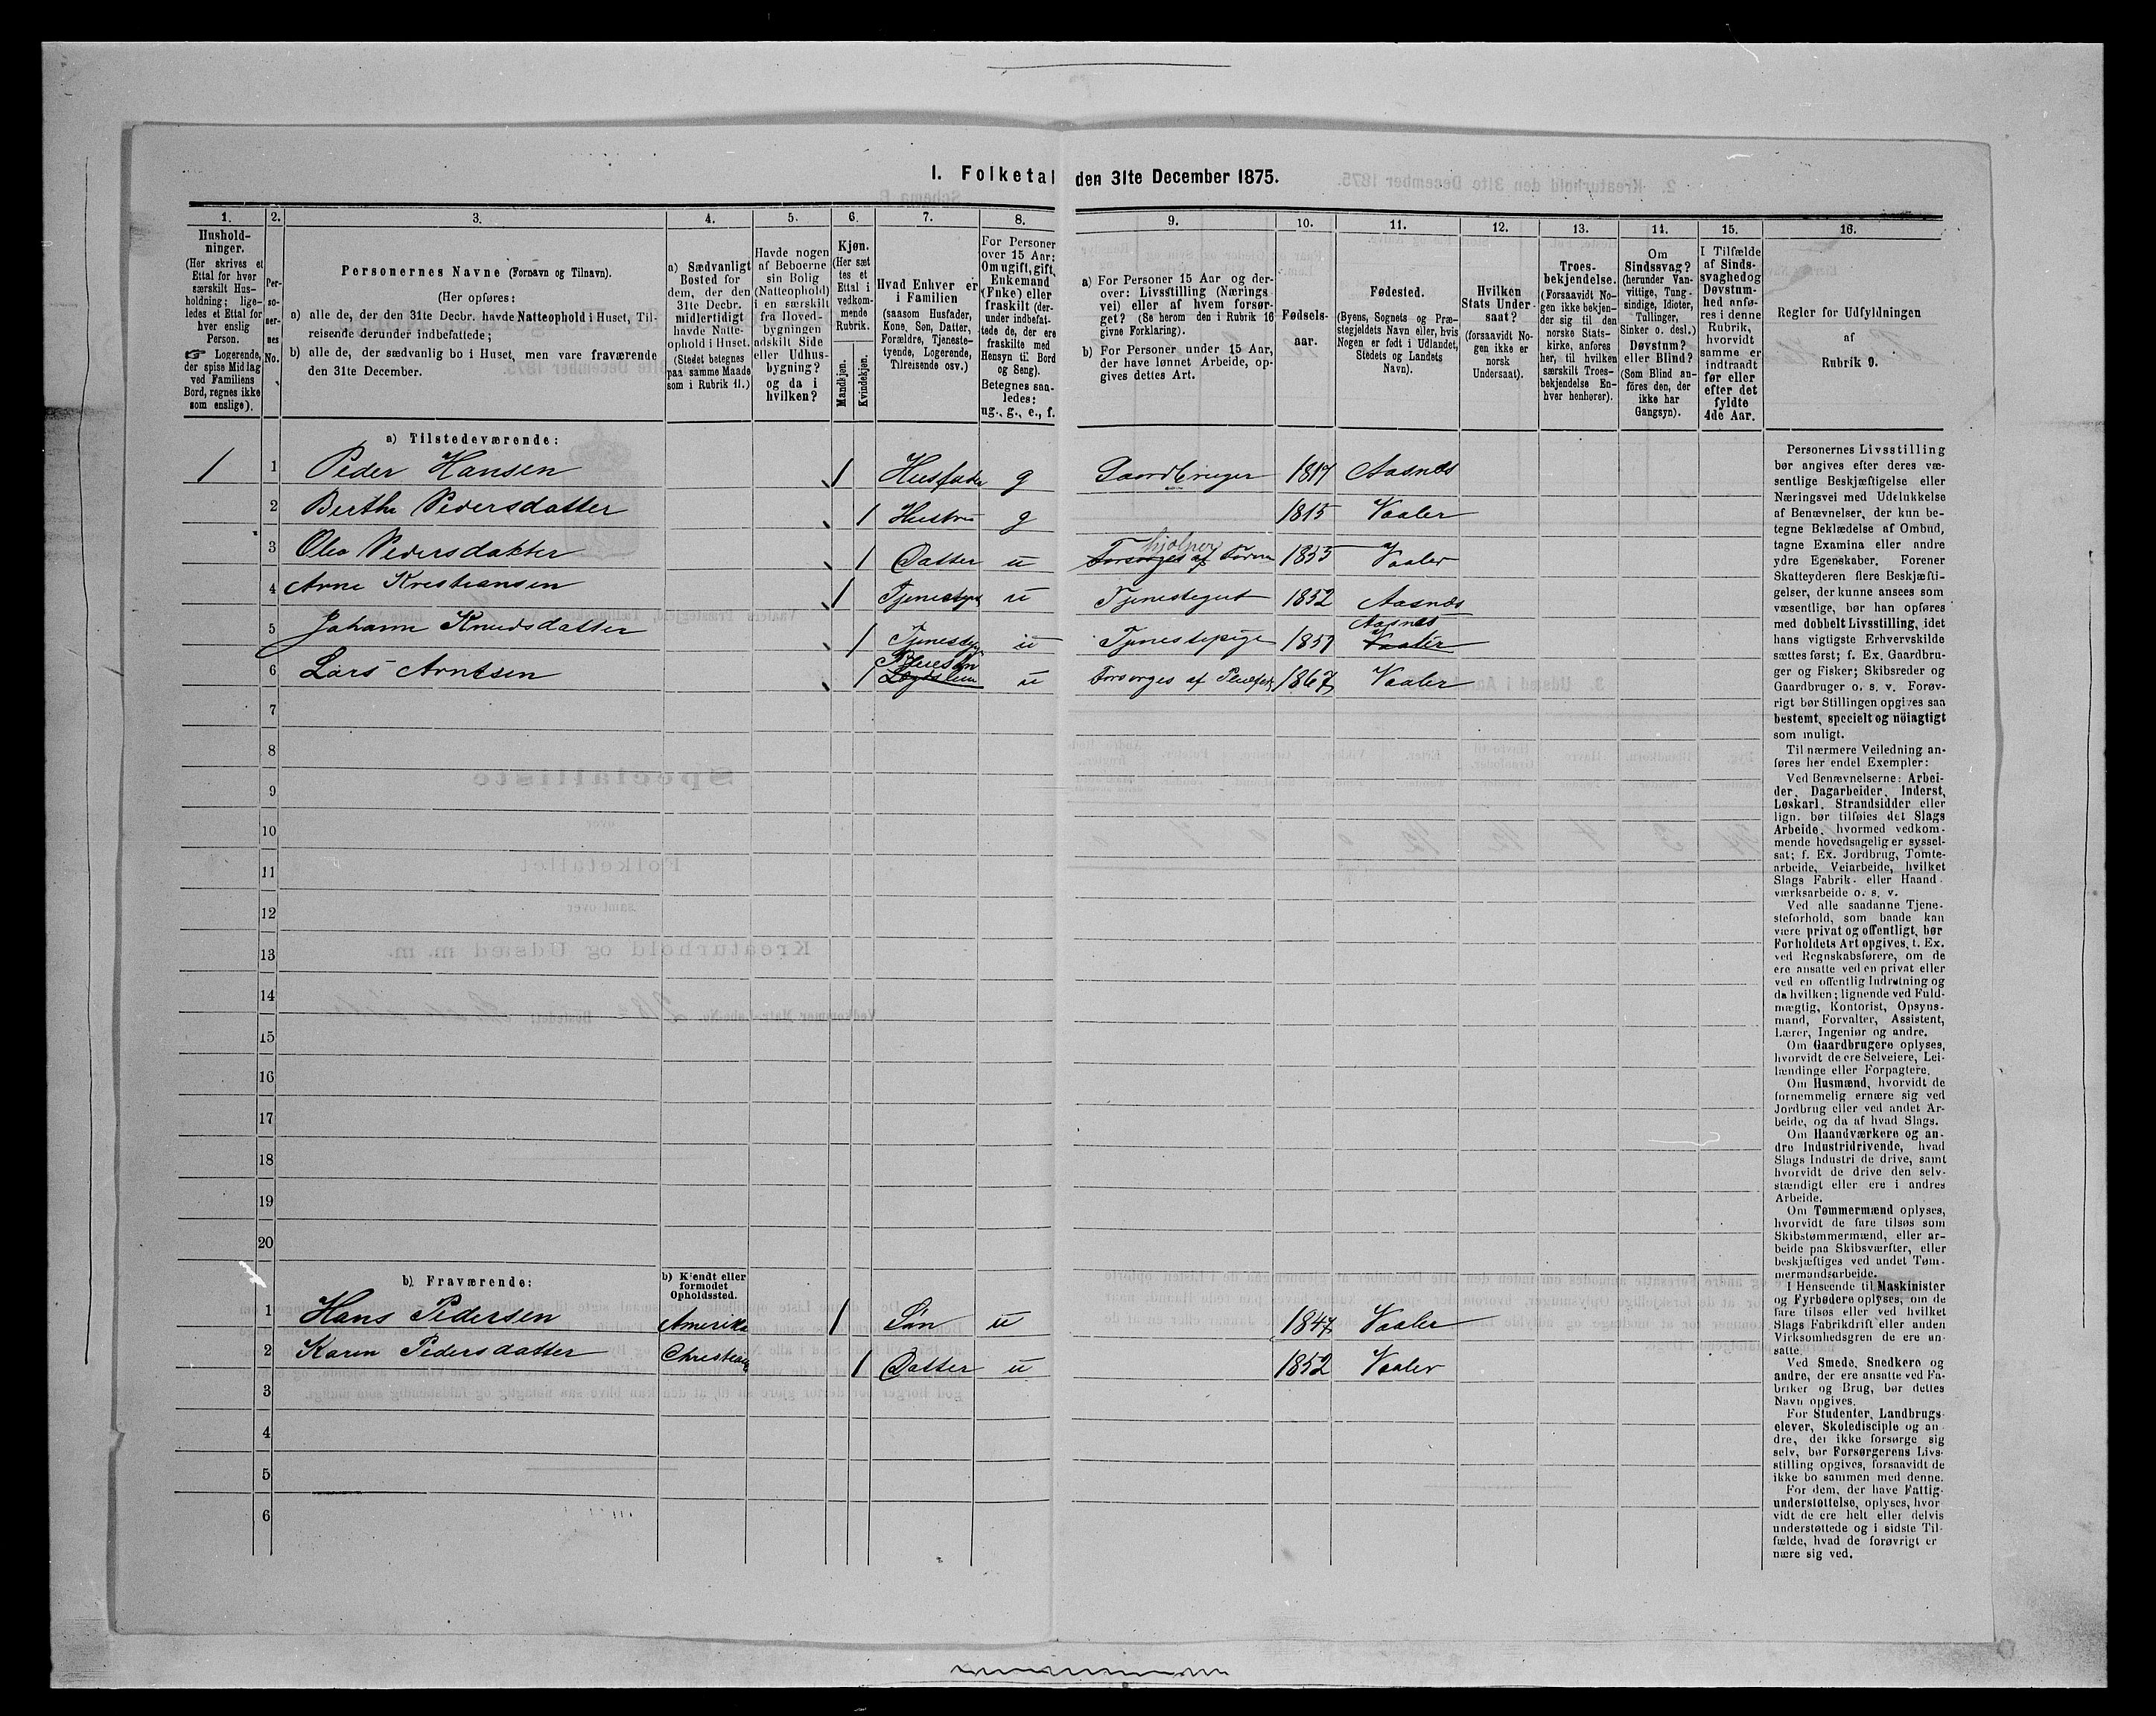 1. Folketal den 31te December 1875.
1.
2.
3.
4.
5.
6.
7.
8.
9.
10.
11.
12.
13.
14.
15.
16.
Hushold-
ninger.
(Her skrives et
Ettal for hver
særskilt Hus-
holdning; lige-
ledes et Ettal for
hver enslig
Person.
☞ Logerende,
der spise Midlag
ved Familiens
Bord, regnes ikke
som enslige).
Per-
so-
ner-
nes
No.
Personernes Navne (Fornavn og Tilnavn).
(Her opføres:
a) alle de, der den 31te Decbr. havde Natteophold i Huset, Til-
reisende derunder indbefattede;
b) alle de, der sædvanlig bo i Huset, men vare fraværende
den 31te December.
a) Sædvanligt
Bosted for
dem, der den
31te Decbr.
midlertidigt
havde Natte-
ophold i Huset.
(Stedet betegnes
paa samme Maade
som i Rubrik 11.)
Havde nogen
af Beboerne
sin Bolig
(Natteophold)
i en særskilt
fra Hoved-
bygningen
adskilt Side
eller Udhus-
bygning?
og da i
hvilken?
Kjøn.
(Her sæt
tes et
Ettal i
vedkom-
mende
Rubrik.
Mandkjøn.
Kvindekjøn.
Hvad Enhver er
i Familien
(saasom Husfader,
Kone, Søn, Datter,
Forældre, Tjeneste-
tyende, Logerende,
Tilreisende osv.)
For Personer
over 15 Aar:
Om ugift, gift,
Enkemand
(Enke) eller
fraskilt (der-
under indbefat-
tede de, der ere
fraskilte med
Hensyn til Bord
og Seng).
Betegnes saa-
ledes:
ug., g., e., f.
a) For Personer 15 Aar og der-
over: Livsstilling (Nærings
vei) eller af hvem forsør-
get? (Se herom den i Rubrik 16
givne Forklaring).
b) For Personer under 15 Aar,
der have lønnet Arbeide, op-
gives dettes Art.
Fødsels-
aar.
Fødested.
(Byens, Sognets og Præ-
stegjeldets Navn eller, hvis
Nogen er født i Udlandet,
Stedets og Landets
Navn).
Hvilken
Stats Under-
saat?
(forsaavidt No-
gen ikke er
norsk
Undersaat).
Troes-
bekjendelse.
(Forsaavidt No-
gen ikke bekjen-
der sig til den
norske Stats-
kirke, anføres
her, til hvilken
særskilt Troes-
bekjendelse En-
hver henhører).
Om
Sindssvag?
(herunder Van-
vittige, Tung-
sindige, Idioter,
Tullinger,
Sinker o. desl.)
Døvstum?
eller Blind?
(Som Blind an-
föres den, der
ikke har
Gangsyn).
I Tilfælde
af Sinds-
svaghed og
Døvstum-
hed anfø-
res i denne
Rubrik,
hvorvidt
samme er
indtraadt
før eller
efter det
fyldte
4de Aar.
Regler for Udfyldningen
af
Rubrik 9.
a) Tilstedeværende:
1 1 Peder Hansen 1 Husfader g Gaardbruger 1817 Aasnes
2 Berthe Pedersdatter 1 Hustru g 1815 Vaaler
3 Olea Pedersdatter 1 Datter u Forsørges af hjelper Foræ 1853 Vaaler
4 Arne Kristiansen 1 Tjenestgut u Tjenestegut 1852 Aasnes
5 Johanne Knudsdatter 1 Tjenestepige u Tjenestepige 1857 Aasnes Vaaler
6 Lars Arntsen 1 Pleiesøn Lægdslem u Forsørges af Pleiefad 1867 Vaaler
7
8
9
10
11
12
13
14
15
16
17
18
19
20
b) Fraværende:
b) Kjendt eller
formodet
Opholdssted.
1 Hans Pedersen Amerika 1 Søn u 1847 Vaaler
2 Karen Pedersdatter Christiania 1 Datter u 1852 Vaaler
3
4
5
6
Personernes Livsstilling
bør angives efter deres væ-
sentlige Beskjæftigelse eller
Næringsvei med Udelukkelse
af Benævnelser, der kun be-
tegne Beklædelse af Ombud,
tagne Examina eller andre
ydre Egenskaber. Forener
Skatteyderen flere Beskjæfti-
gelser, der kunne ansees som
væsentlige, bør han opføres
med dobbelt Livsstilling, idet
hans vigtigste Erhvervskilde
sættes først; f. Ex. Gaardbru-
ger og Fisker; Skibsreder og
Gaardbruger o. s. v. Forøv-
rigt bør Stillingen opgives saa
bestemt, specielt og nöiagtigt
som muligt.
Til nærmere Veiledning an-
føres her endel Exempler:
Ved Benævnelserne: Arbei-
der, Dagarbeider, Inderst,
Løskarl, Strandsidder eller
lign. bør tilføies det Slags
Arbeide, hvormed vedkom-
mende hovedsagelig er syssel-
sat; f. Ex. Jordbrug, Tomte-
arbeide, Veiarbeide, hvilket
Slags Fabrik- eller Haand-
værksarbeide o. s. v.
Ved alle saadanne Tjene-
steforhold, som baade kan
være privat og offentligt, bør
Forholdets Art opgives, t. Ex.
ved Regnskabsførere, om de
ere ansatte ved en privat eller
ved en offentlig Indretning og
da hvilken; lignende ved Fuld-
mægtig, Kontorist, Opsyns-
mand, Forvalter, Assistent,
Lærer, Ingeniør og andre.
Om Gaardbrugere oplyses,
hvorvidt de ere Selveiere, Lei-
lændinge eller Forpagtere.
Om Husmænd, hvorvidt de
fornemmelig ernære sig ved
Jordbrug eller ved andet Ar-
beide, og da af hvad Slags.
Om Haandværkere og an-
dre Industridrivende, hvad
Slags Industri de drive, samt
hvorvidt de drive den selv-
stændigt eller ere i andres
Arbeide.
Om Tømmermænd oplyses,
hvorvidt de fare tilsøs som
Skibstømmermænd, eller ar-
beide paa Skibsværfter, eller
beskjæftiges ved andet Tøm-
mermandsarbeide.
I Henseende til Maskinister
og Fyrbødere oplyses, om de
fare tilsøs eller ved hvilket
Slags Fabrikdrift eller anden
Virksomhedsgren de ere an-
satte.
Ved Smede, Snedkere og
andre, der ere ansatte ved Fa-
briker og Brug, bør dettes
Navn opgives.
For Studenter, Landbrugs-
elever, Skoledisciple og an-
dre, der ikke forsørge sig
selv, bør Forsørgerens Livs-
stilling opgives, forsaavidt de
ikke bo sammen med denne.
For dem, der have Fattig-
understøttelse, oplyses, hvor-
vidt de ere helt eller delvis
understøttede og i sidste Til-
fælde, hvad de forøvrigt er
nære sig ved.